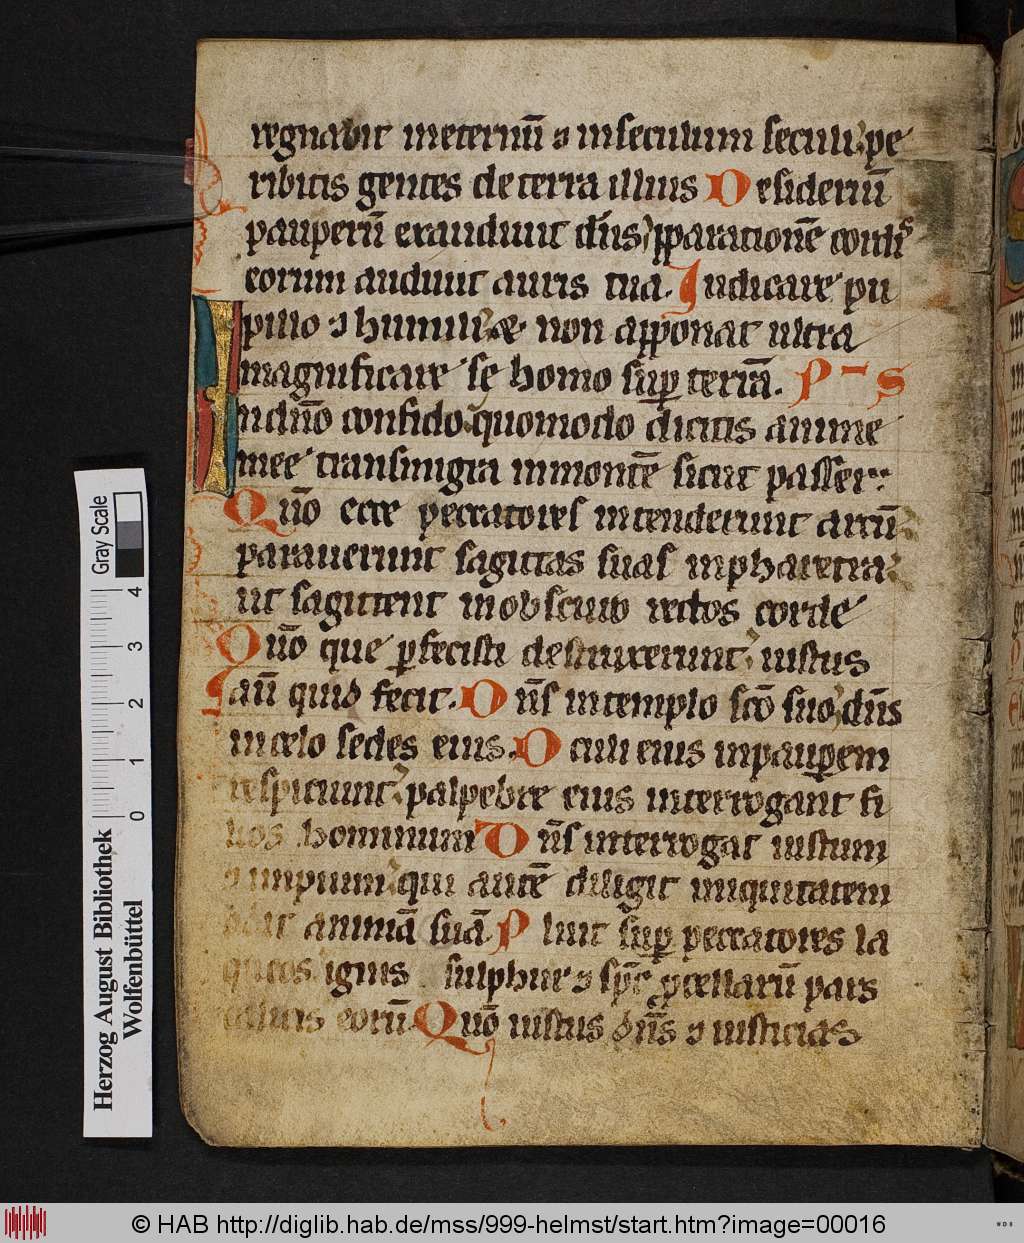 regnabit ineternū ⁊ inseculum seculi: pe
ribitis gentes de terra illius Desideriū
pauperū exaudiuit dn̄s, p̄paratione᷑ cordis
eorum audiuit auris tua. Iudicare pu
pillo ⁊ humili: non apponat ultra
magnificare se homo sup terrā. Ps
In dn̄o confido quomodo dicitis anime
mee transmigra in montē sicut passer:
Qm̄o ecce peccatores intenderunt arcū
parauerunt sagittas suas inpharetra
ut sagittent in obscuro rectos corde
Qm̄o que pfecisti destruxerunt: iustus
autē quid fecit. Dn̄s in templo scō suo, dn̄s
in celo sedes eius. Oculi eius inpauperem
respiciunt: palpebre eius interrogant fi
lios hominum Dn̄s interrogat iustum
⁊ impium: qui autē diligit iniquitatem
odit animā suā. Pluit sup peccatores la
queos ignis sulphur ⁊ sp̄c pcellarū pars
calicis eorū. Qm̄o iustus dn̄s ⁊ iusticias
Herzog August Bibliothek
Wolfenbüttel
Gray Scale
0 1 2 3 4
© HAB http://diglib.hab.de/mss/999-helmst/start.htm?image=00016
WDB